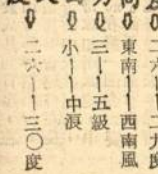 二六——二九度
向⇩東南——西南風
力⇩三——五級
⇩小——中浪
⇩二六——三〇度
度